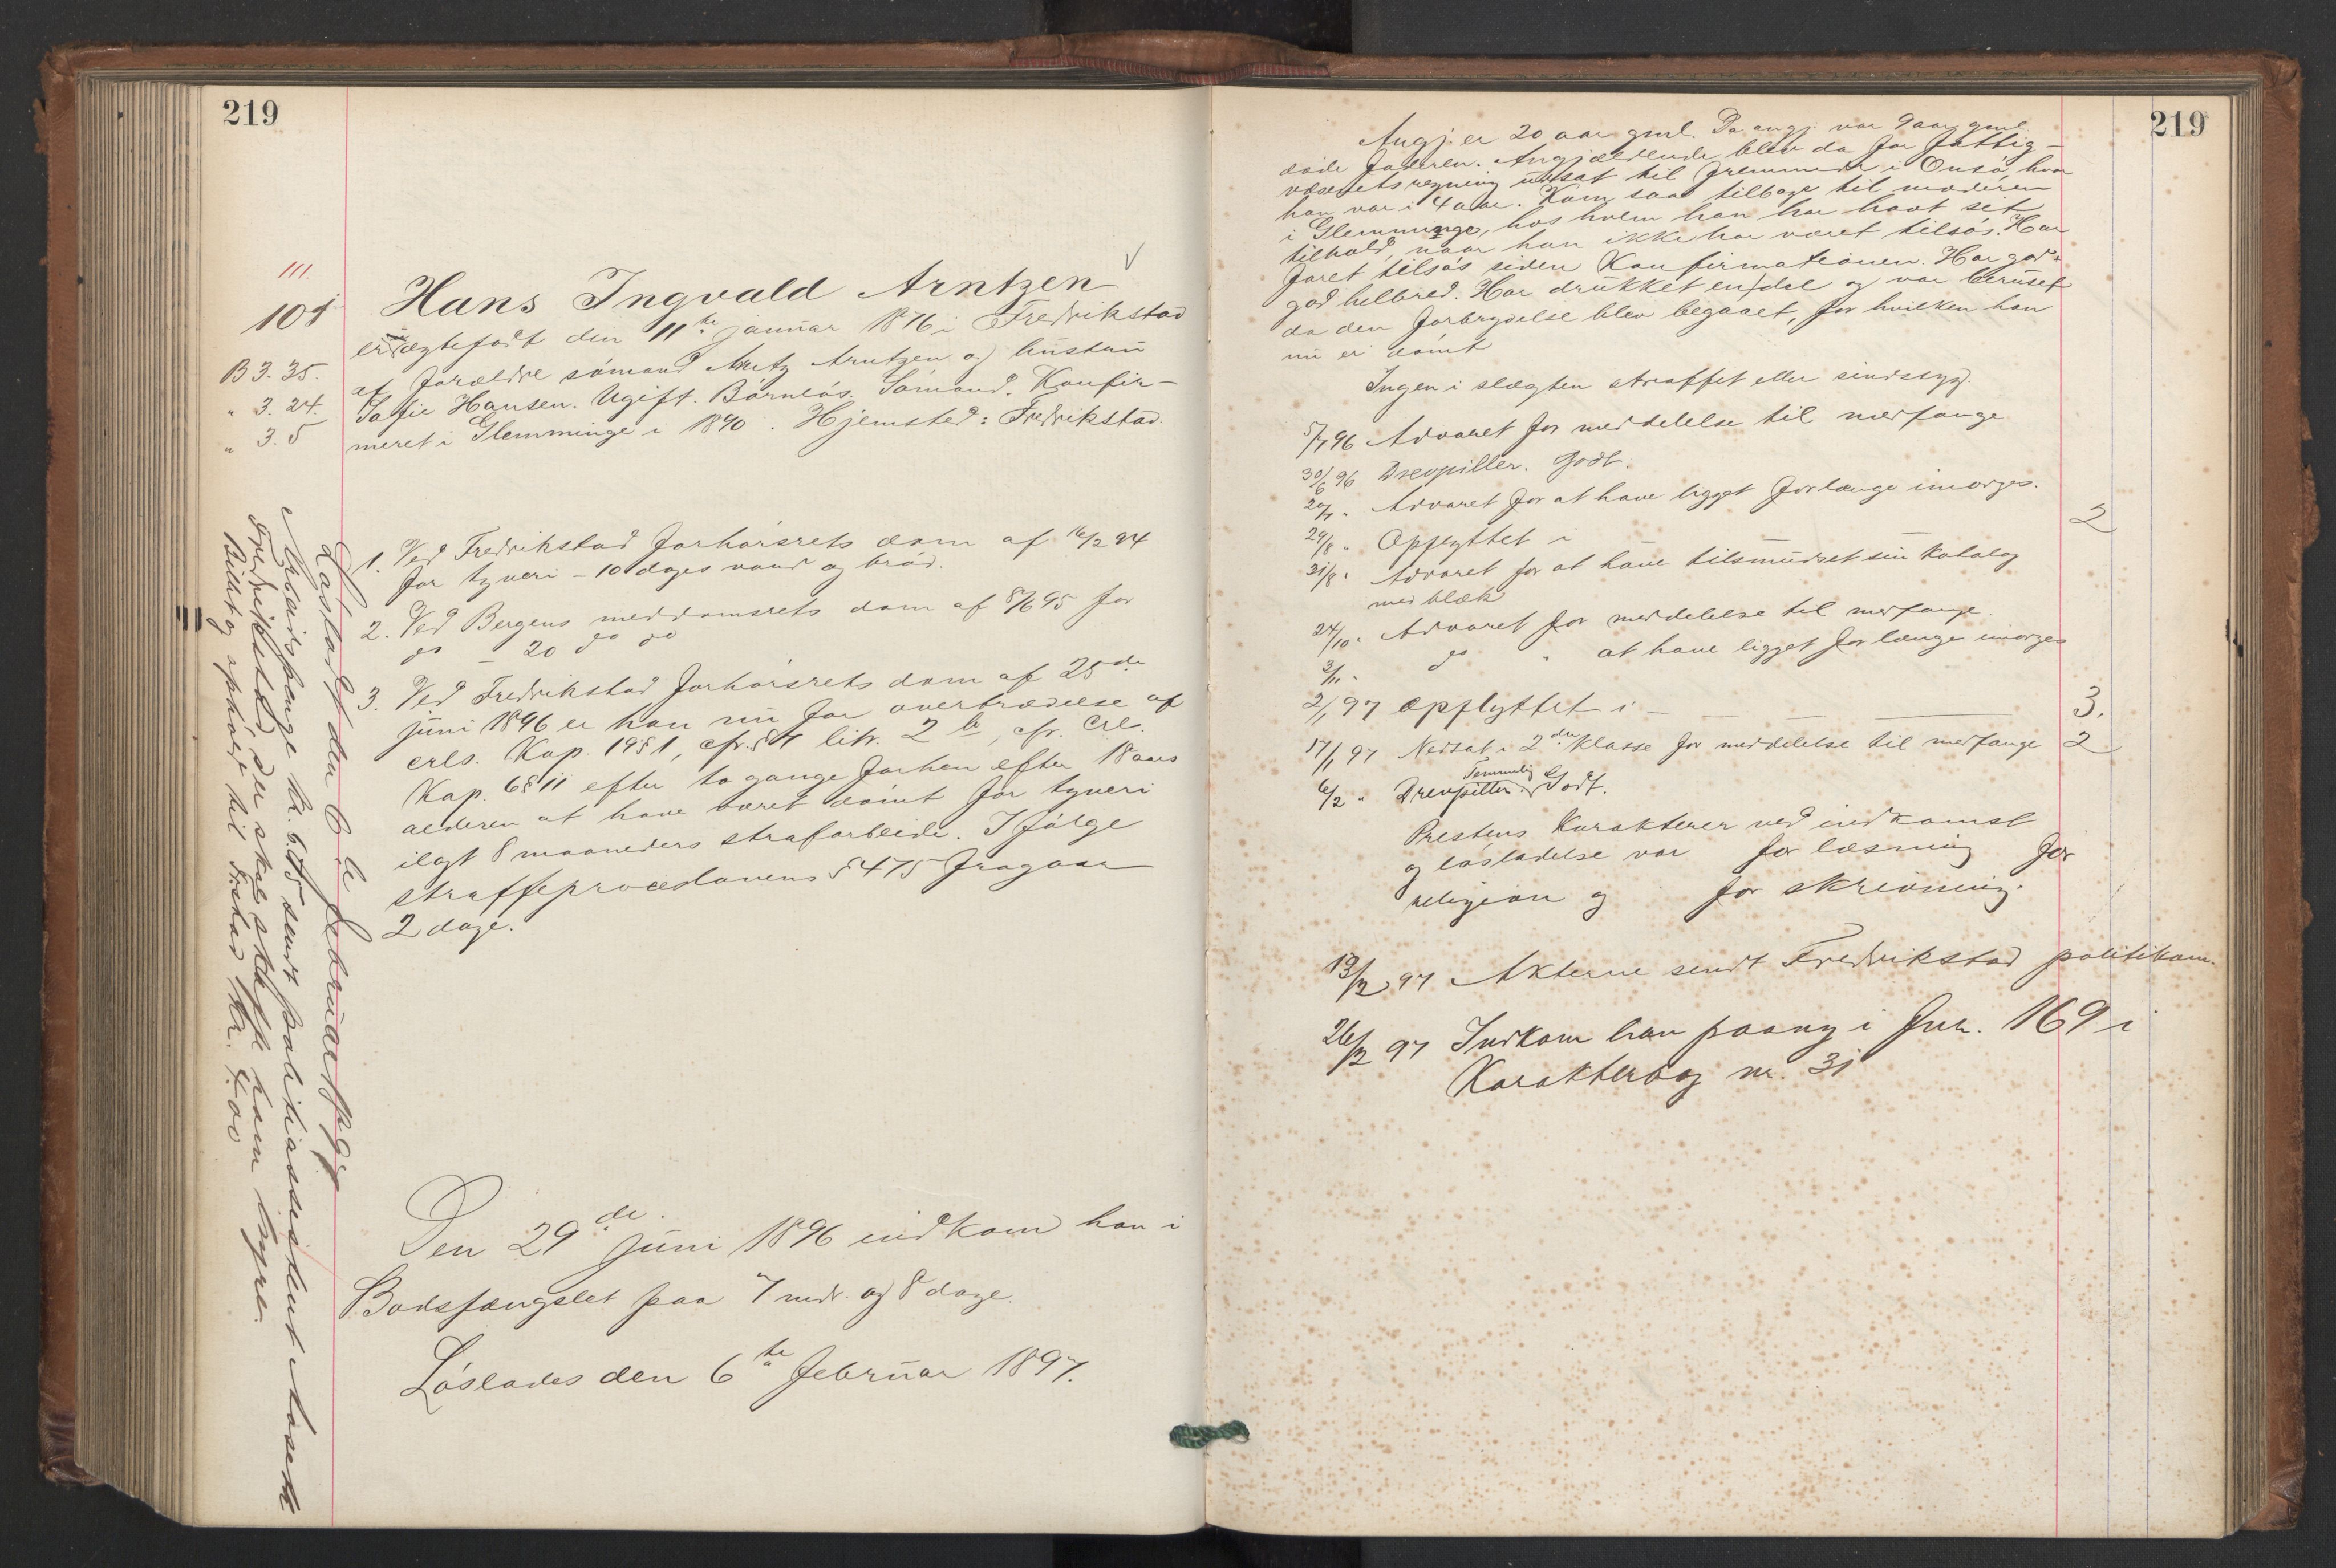 219
111.
101
B 3. 35.
" 3. 24.
" 3. 5
Hans Ingvald Arntzen
er ægtefødt den 11te januar 1876 i Fredrikstad
af forældre sømand Arntz Arntzen og hustru
Sofie Hansen. Ugift. Børnløs. Sømand. Konfir-
meret i Glemminge i 1890. Hjemsted: Fredrikstad.
1. Ved Fredrikstad forhørsrets dom af 16/2 94
for tyveri – 10 dages vand og brød.
2. Ved Bergens meddomsrets dom af 8/6 95 for
do – 20 do do
3. Ved Fredrikstad forhørsrets dom af 25de
juni 1896 er han nu for overtrædelse af
crls. Kap. 19 § 1, cfr. § 4 litr. 2 b, cfr. crl.
Kap. 6 § 11 efter to gange forhen efter 18 aars
alderen at have været dømt for tyveri
ilagt 8 maaneders strafarbeide. I følge
straffeproceslovens § 475 fragaar
2 dage.
Den 29de juni 1896 indkom han i
Bodsfængslet paa 7 mdr. og 8 dage.
Løslades den 6te februar 1897.
Løsladt den 6te februar 1897
Arbeidspenge kr. 6.75 sendt politiassistent Aaserud
Fredrikstad, der skal skaffe ham hyre.
Billet og ophold til Fr.stad kr. 4.00
219
Angj. er 20 aar gml. Da angj. var 9 aar gml.
døde faderen. Angjældende blev da for fattig-
væsenets regning udsat til fremmede i Onsø, hvor
han var i 4 aar. Kom saa tilbage til moderen
i Glemminge, hos hvem han har havt sit
tilhold, naar han ikke har været tilsøs. Har
faret tilsøs siden Konfirmationen. Har god
god helbred. Har drukket endel og var beruset
da den forbrydelse blev begaaet, for hvilken han
nu er dømt
Ingen i slægten straffet eller sindssyg.
5/7 96 Advaret for meddelelse til medfange
30/6 96 Drevpiller. Godt.
20/7 " Advaret for at have ligget forlænge imorges.
29/8 " Opflyttet i 2
31/8 " Advaret for at have tilsmudset sin katalog
med blæk
24/10 " Advaret for meddelelse til medfange.
3/11 " do " at have ligget forlænge imorges
2/1 97 Opflyttet i — — — 3.
17/1 97 Nedsat i 2den Klasse for meddelelse til medfange 2
6/2 " Drevpiller. Temmelig Godt.
Prestens Karakterer ved indkomst
og løsladelse var for læsning for
religion og for skrivning.
13/2 97 Akterne sendt Fredrikstad politikam.
26/2 97 Indkom han paany i fnr. 169 i
Karakterbog nr. 31